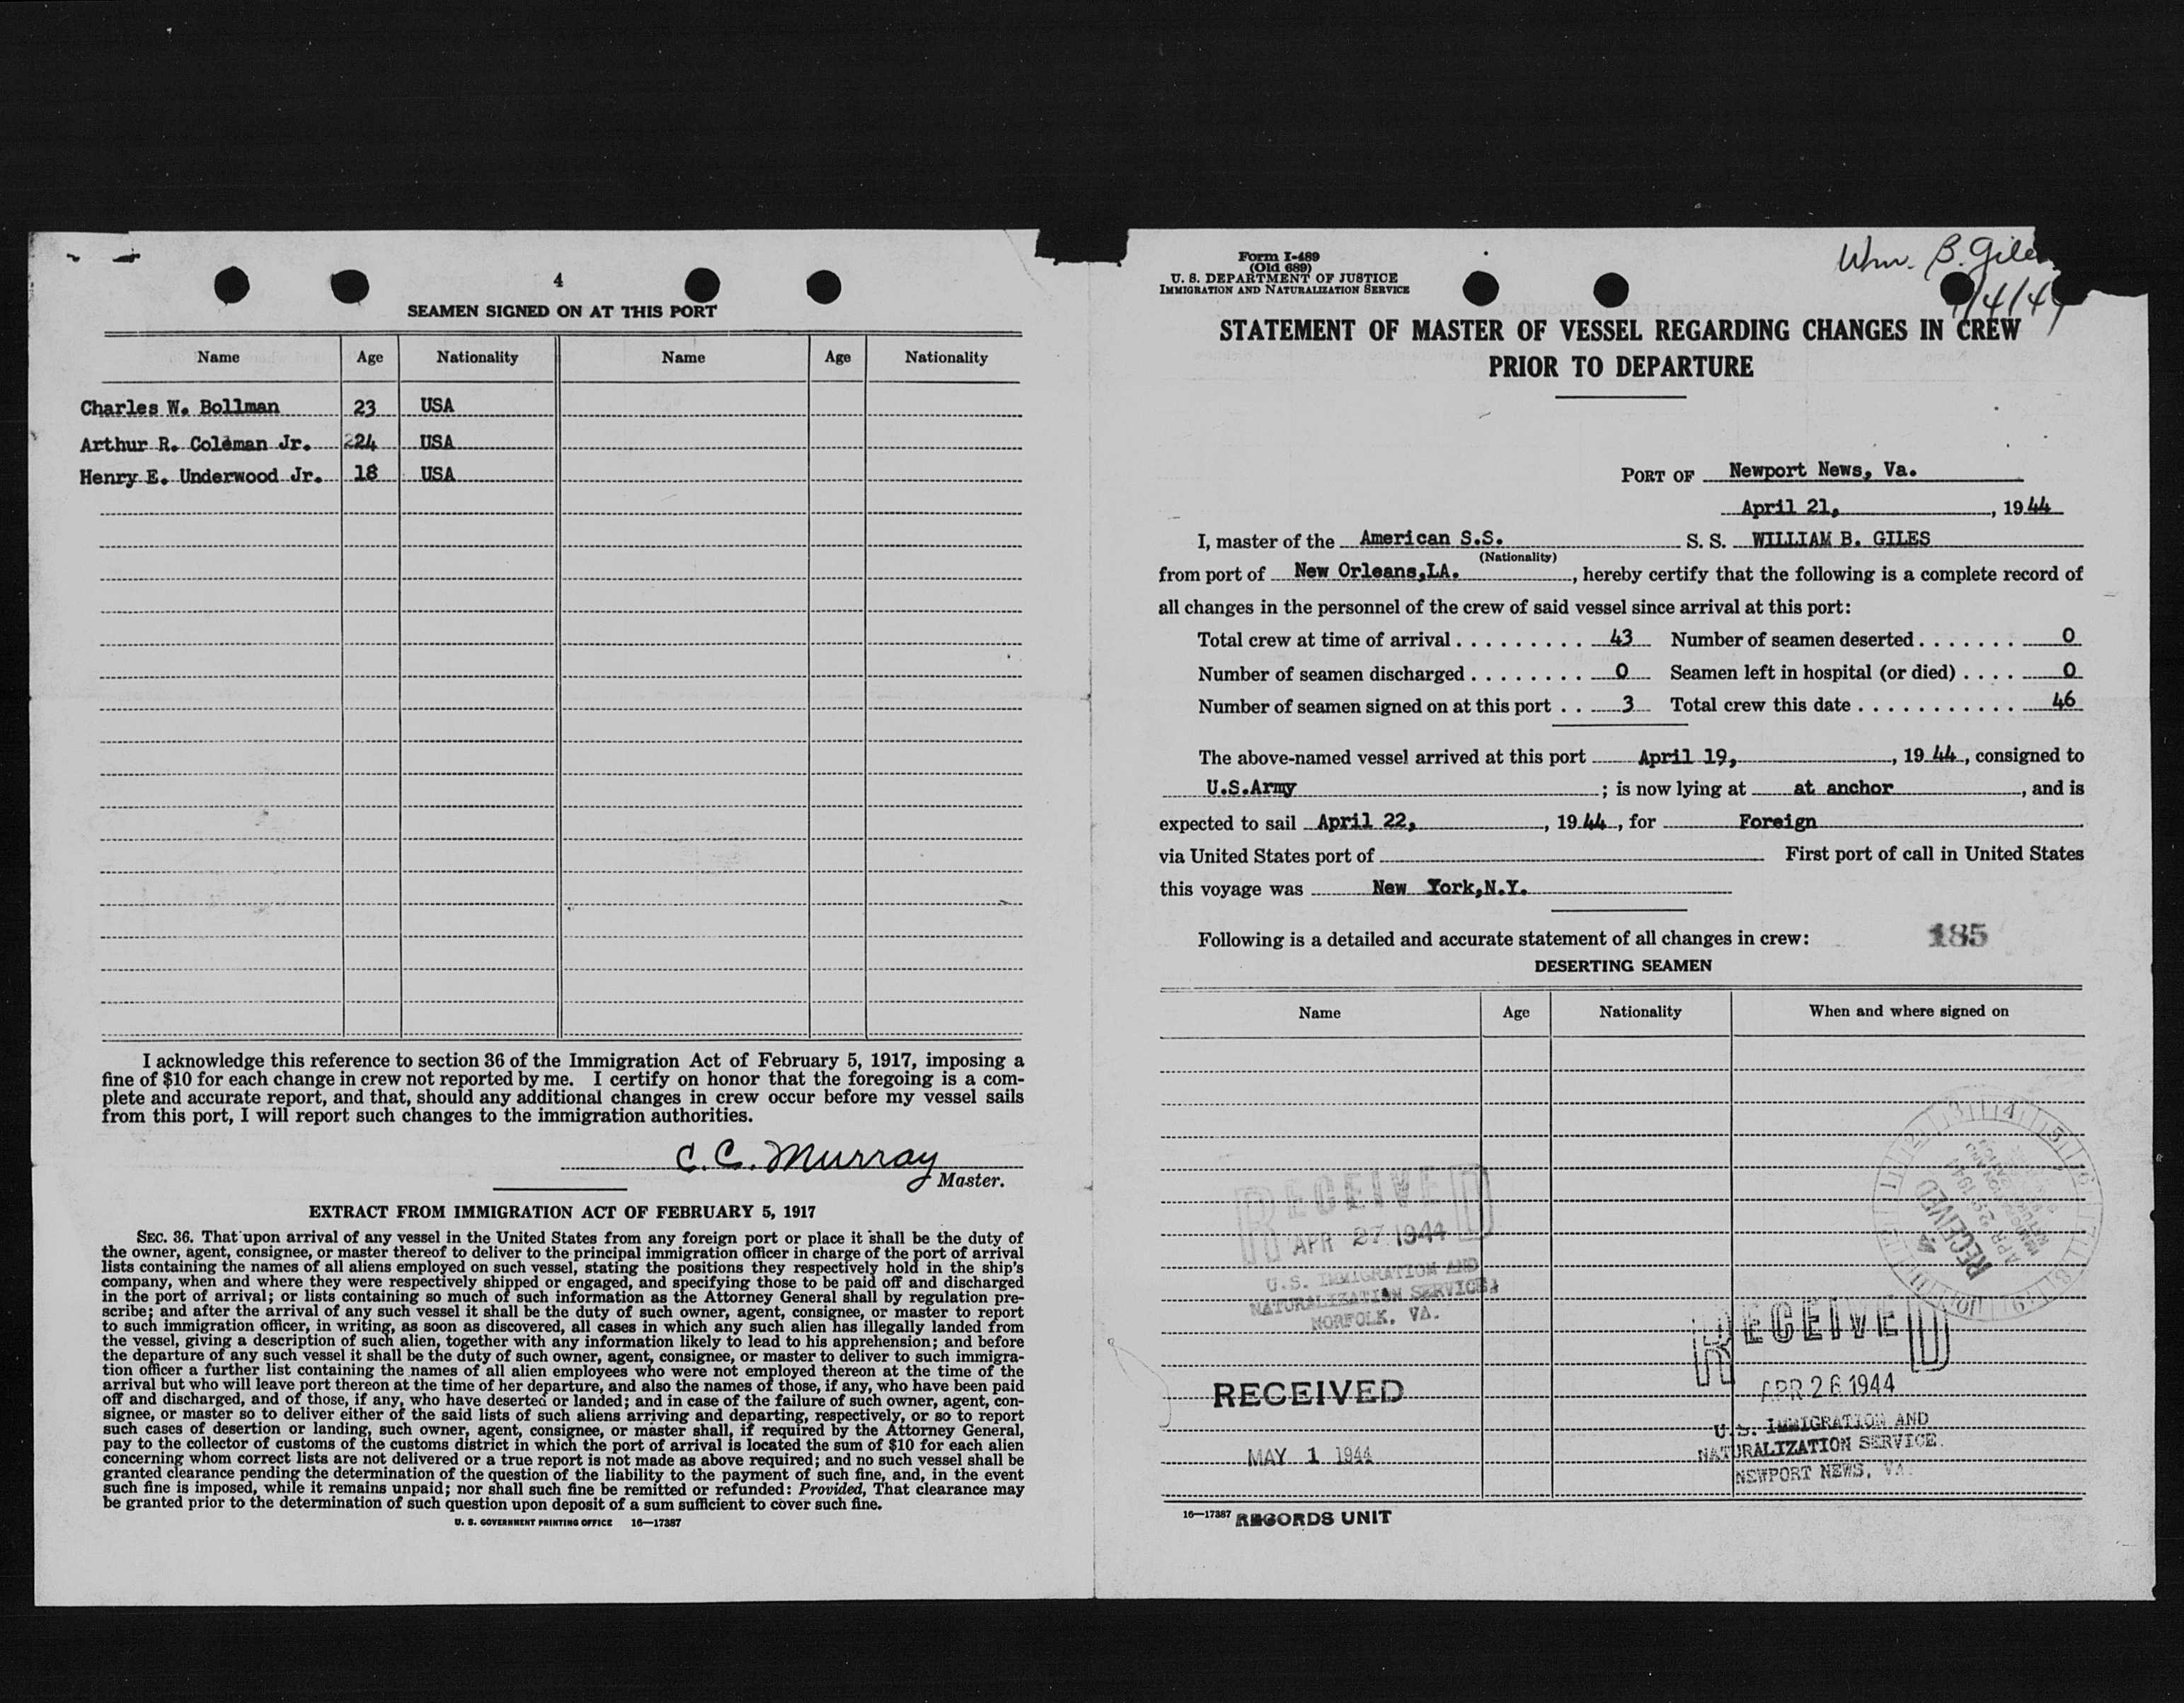 4
SEAMEN SIGNED ON AT THIS PORT
Name Age Nationality Name Age Nationality
Charles W. Bollman 23 USA
Arthur R. Coleman Jr. 224 USA
Henry E. Underwood Jr. 18 USA
I acknowledge this reference to section 36 of the Immigration Act of February 5, 1917, imposing a
fine of $10 for each change in crew not reported by me. I certify on honor that the foregoing is a com-
plete and accurate report, and that, should any additional changes in crew occur before my vessel sails
from this port, I will report such changes to the immigration authorities.
C. C. Murray
Master.
EXTRACT FROM IMMIGRATION ACT OF FEBRUARY 5, 1917
SEC. 36. That upon arrival of any vessel in the United States from any foreign port or place it shall be the duty of
the owner, agent, consignee, or master thereof to deliver to the principal immigration officer in charge of the port of arrival
lists containing the names of all aliens employed on such vessel, stating the positions they respectively hold in the ship's
company, when and where they were respectively shipped or engaged, and specifying those to be paid off and discharged
in the port of arrival; or lists containing so much of such information as the Attorney General shall by regulation pre-
scribe; and after the arrival of any such vessel it shall be the duty of such owner, agent, consignee, or master to report
to such immigration officer, in writing, as soon as discovered, all cases in which any such alien has illegally landed from
the vessel, giving a description of such alien, together with any information likely to lead to his apprehension; and before
the departure of any such vessel it shall be the duty of such owner, agent, consignee, or master to deliver to such immigra-
tion officer a further list containing the names of all alien employees who were not employed thereon at the time of the
arrival but who will leave port thereon at the time of her departure, and also the names of those, if any, who have been paid
off and discharged, and of those, if any, who have deserted or landed; and in case of the failure of such owner, agent, con-
signee, or master so to deliver either of the said lists of such aliens arriving and departing, respectively, or so to report
such cases of desertion or landing, such owner, agent, consignee, or master shall, if required by the Attorney General,
pay to the collector of customs of the customs district in which the port of arrival is located the sum of $10 for each alien
concerning whom correct lists are not delivered or a true report is not made as above required; and no such vessel shall be
granted clearance pending the determination of the question of the liability to the payment of such fine, and, in the event
such fine is imposed, while it remains unpaid; nor shall such fine be remitted or refunded: Provided, That clearance may
be granted prior to the determination of such question upon deposit of a sum sufficient to cover such fine.
U. S. GOVERNMENT PRINTING OFFICE 16—17387
Form I-489
(Old 689)
U. S. DEPARTMENT OF JUSTICE
IMMIGRATION AND NATURALIZATION SERVICE
Wm. B. Giles
/4/44
STATEMENT OF MASTER OF VESSEL REGARDING CHANGES IN CREW
PRIOR TO DEPARTURE
PORT OF Newport News, Va.
April 21, , 1944
I, master of the American S.S. S. S. WILLIAM B. GILES
(Nationality)
from port of New Orleans,LA. , hereby certify that the following is a complete record of
all changes in the personnel of the crew of said vessel since arrival at this port:
Total crew at time of arrival 43 Number of seamen deserted 0
Number of seamen discharged 0 Seamen left in hospital (or died) 0
Number of seamen signed on at this port 3 Total crew this date 46
The above-named vessel arrived at this port April 19, , 1944, consigned to
U.S.Army ; is now lying at at anchor , and is
expected to sail April 22, , 1944, for Foreign
via United States port of First port of call in United States
this voyage was New York,N.Y.
Following is a detailed and accurate statement of all changes in crew: 185
DESERTING SEAMEN
Name Age Nationality When and where signed on
RECEIVED
APR 27 1944
U.S. IMMIGRATION AND
NATURALIZATION SERVICE
NORFOLK, VA.
RECEIVED
APR 29 1944
RECEIVED
APR 26 1944
U.S. IMMIGRATION AND
NATURALIZATION SERVICE
NEWPORT NEWS, VA.
RECEIVED
MAY 1 1944
16—17387 RECORDS UNIT